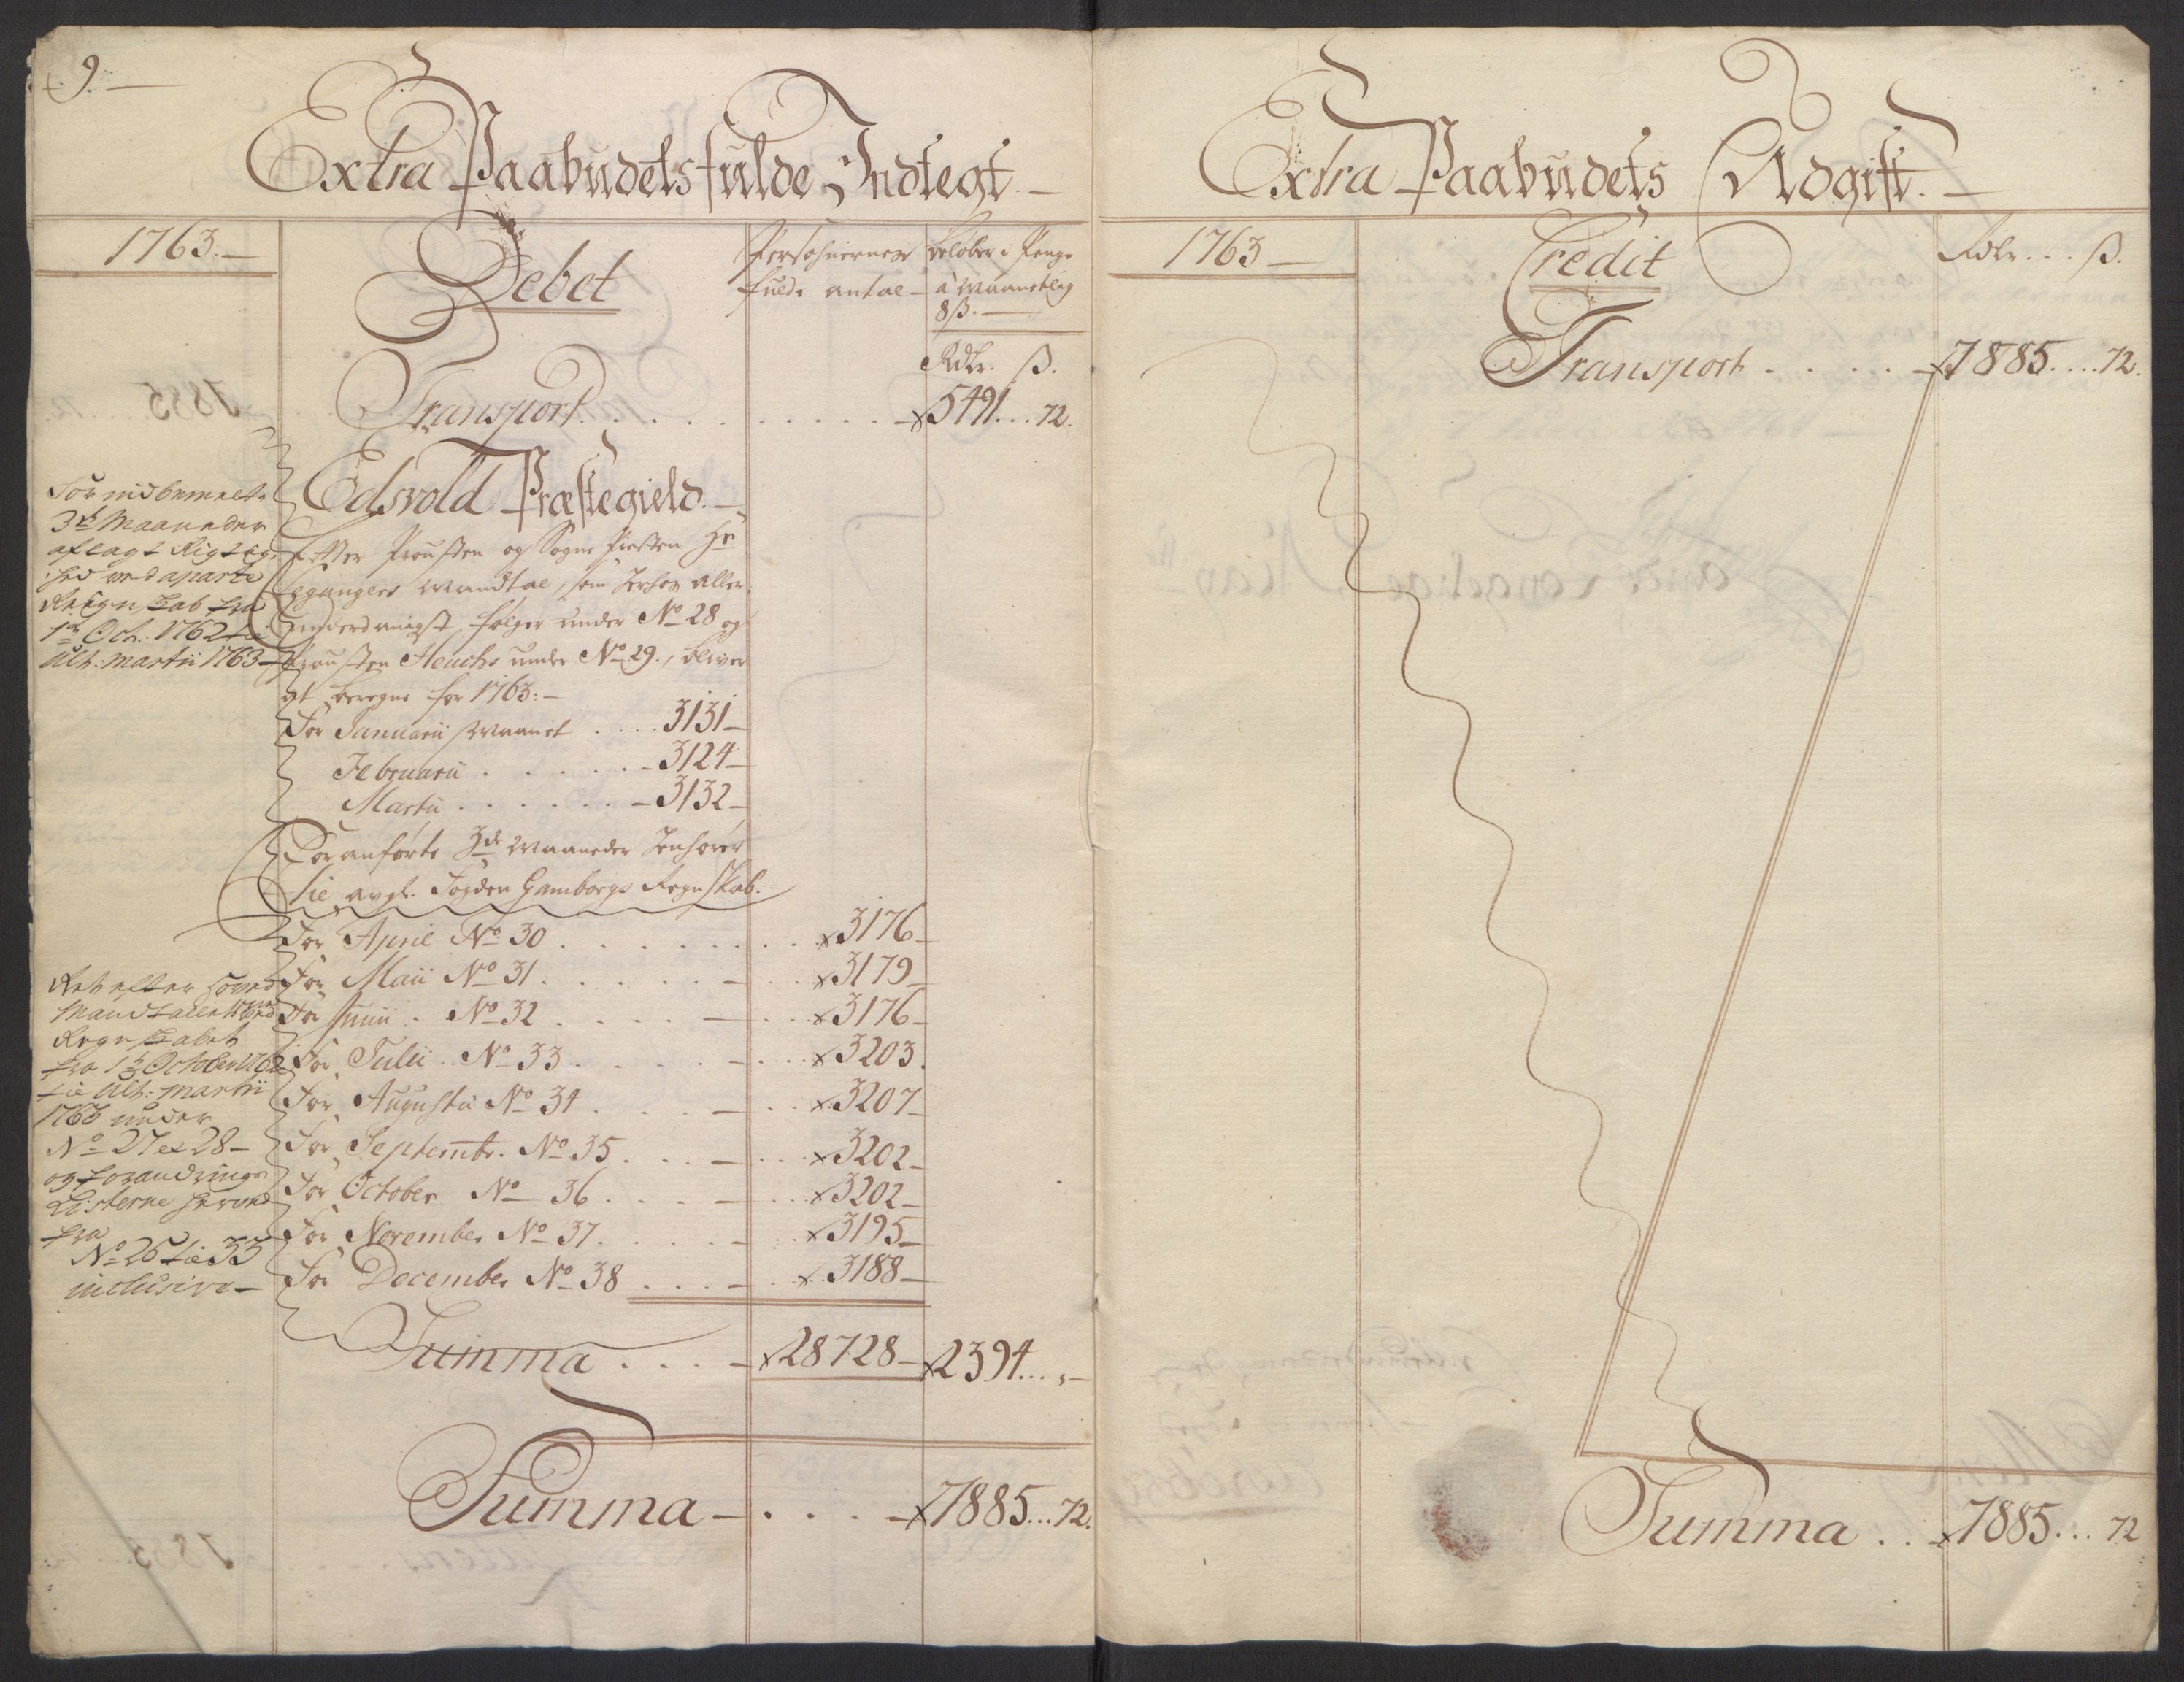 9.
Extra Paabudets fulde Indtegt.
1763.
Debet
Persohnernes
fulde antal
beløber i Penge
à Maanetlig
8 ß.
Rdlr. ß.
Transport . . . . 5491 . . . 72.
Edsvold Præstegield.
Efter Prousten og Sogne Presten Hr
Mandtal, som herhos aller
underdanigst følger under No 28 og
Prousten Heuchs under No 29., bliver
at beregne for 1763:
For Januarii Maanet . . . . 3131
Februarii . . . . 3124
Martii . . . . 3132
For anførte 3de Maaneder henhører
til afgl. Fogden Gamborgs Regnskab.
For April No 30 . . . . 3176
For Maii No 31 . . . . 3179
For Junii No 32 . . . . 3176
For Julii No 33 . . . . 3203.
For Augustii No 34 . . . . 3207
For Septembr. No 35 . . . . 3202
For October No 36 . . . . 3202
For November No 37 . . . . 3195
For December No 38 . . . . 3188
Summa . . . . 28728 2394 . . . „
Summa . . . . 7885 . . . 72.
For
3de Maaneder
aflagt Rigtig-
hed ved aparte
Regnskab fra
1te Oct: 1762 til
Ult: Martii 1763
Ret efter hoved
Mandtallerne ved
Regnskabet
fra 1te October 1762
til Ult: Martii
1763 under
No 27 et 28
og forandrings
Listerne herved
fra
No 25 til 33
inclusive
Extra Paabudets Udgift.
1763
Credit
Rdlr. . . ß.
Transport . . . . 7885 . . . . 72.
Summa . . 7885 . . . 72